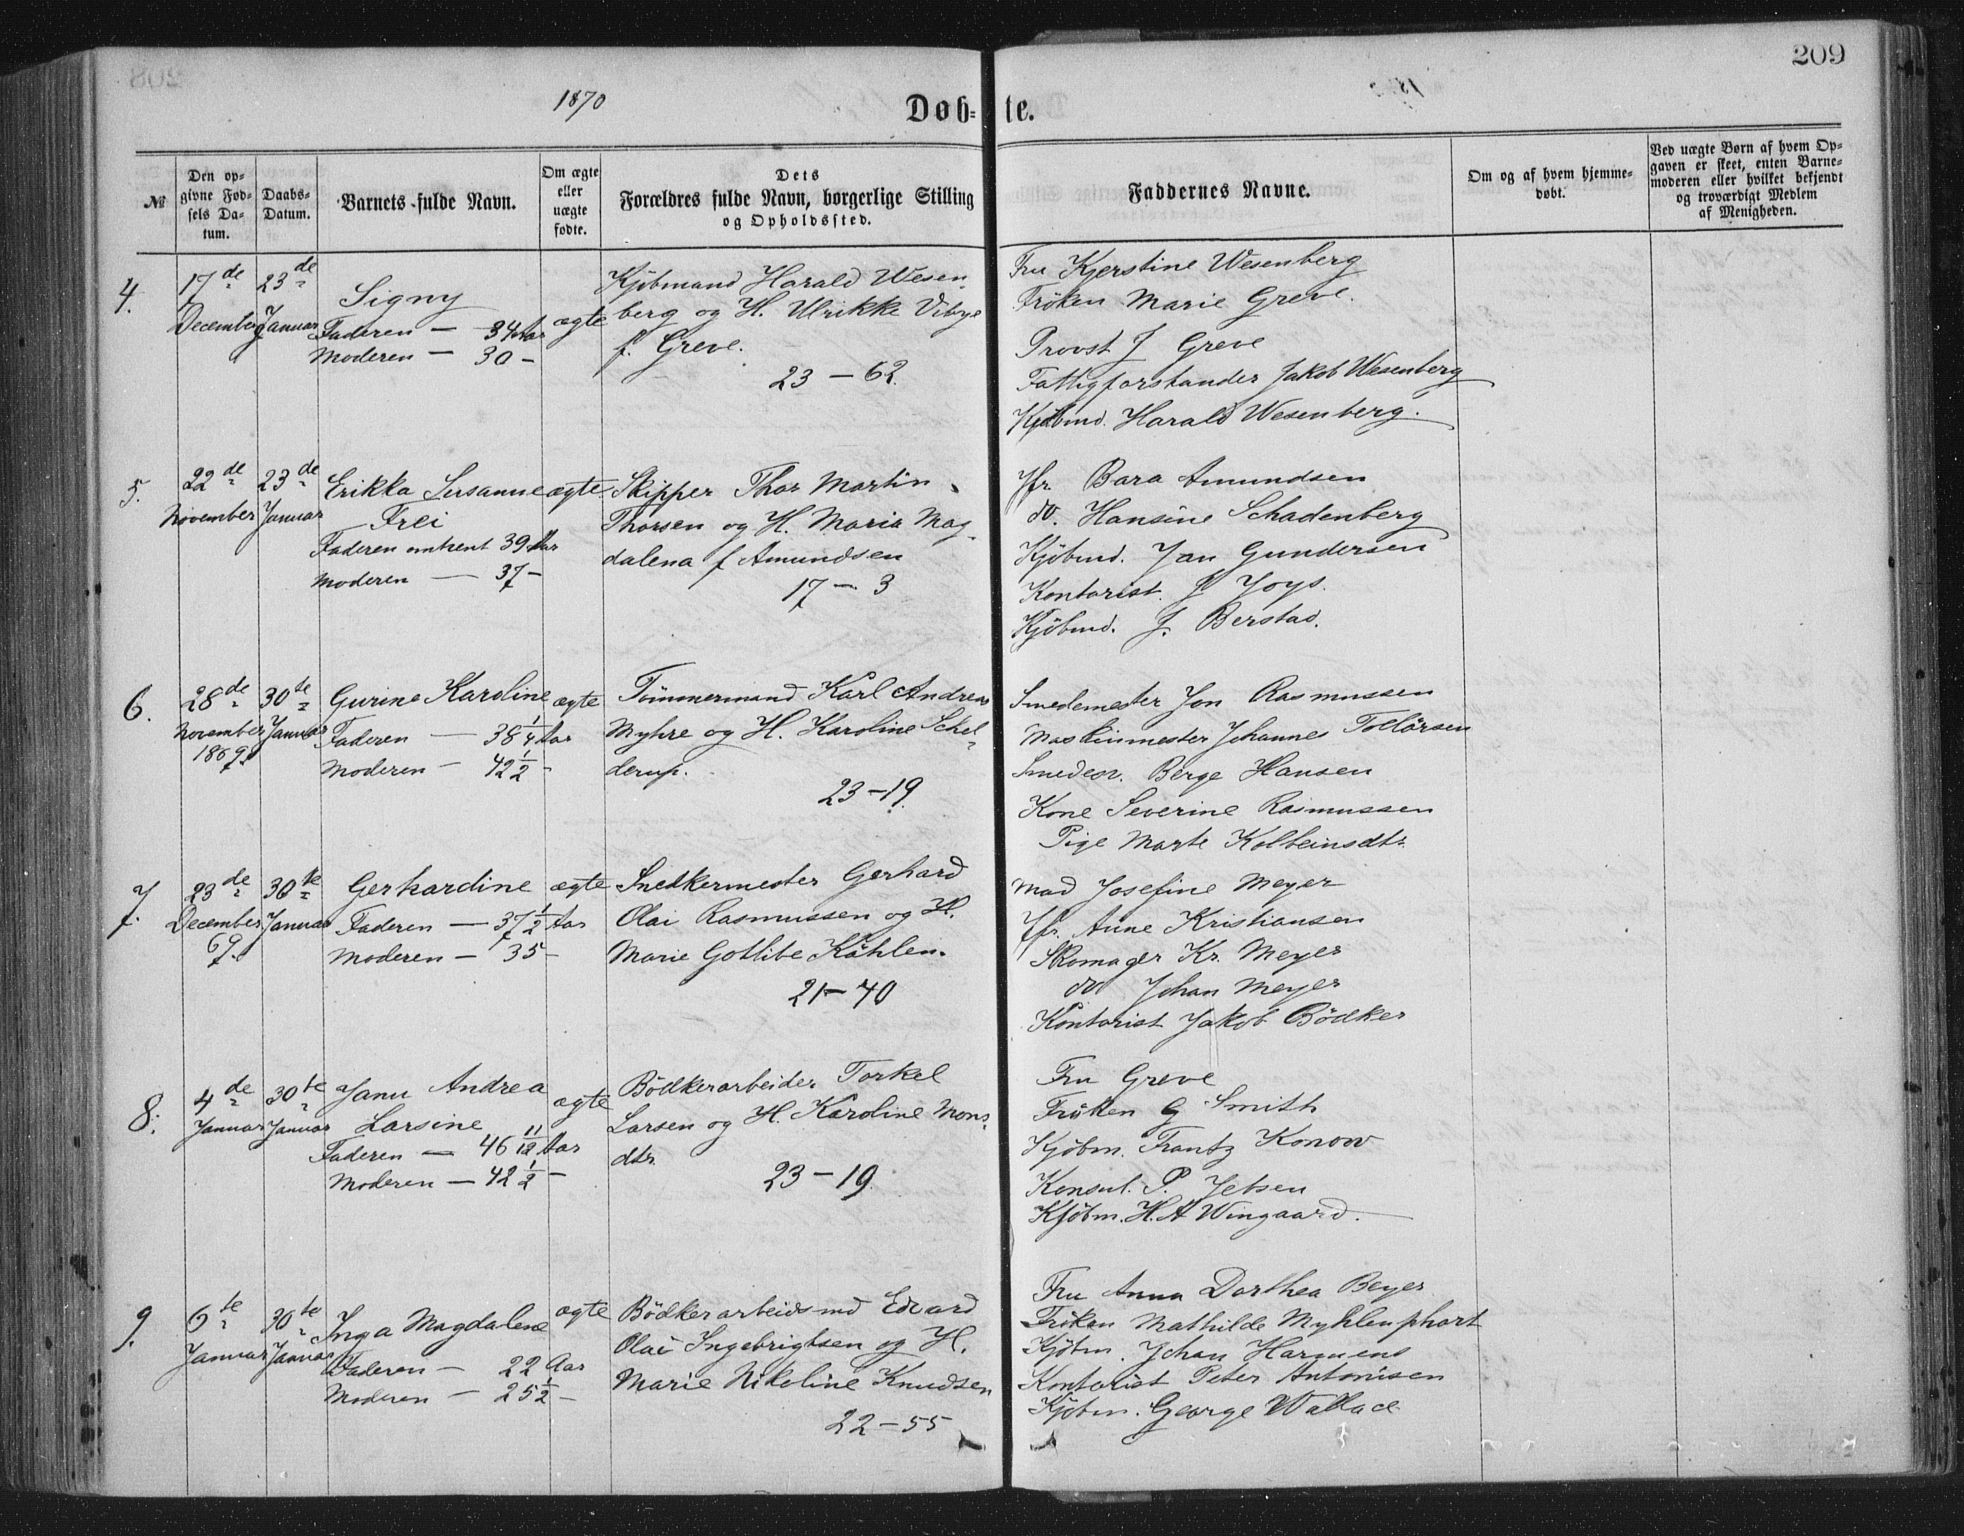 209
1870
Døb- te.
№
Den opgivne Fødsels Datum.
Daabs-Datum.
Barnets fulde Navn.
Om ægte eller uægte fødte.
Dets Forældres fulde Navn, borgerlige Stilling og Opholdssted.
Faddernes Navne.
Om og af hvem hjemmedøbt.
Ved uægte Børn af hvem Opgaven er skeet, enten Barnemoderen eller hvilket bekjendt og troværdigt Medlem af Menigheden.
4.
17de December
23de Januar
Signy
Faderen — 34 Aar
Moderen — 30 —
ægte
Kjøbmand Harald Wesen-
berg og H. Ulrikke Vibye
f. Greve.
23 — 62.
Fru Kjerstine Wesenberg
Frøken Marie Greve.
Provst J Greve
Fattigforstander Jakob Wesenberg
Kjøbmd. Harald Wesenberg.
5.
22de November
23de Januar
Erikka Susanne
Frei
Faderen omtrent 39 Aar
Moderen — 37 —
ægte
Skipper Thor Martin
Thorsen og H. Maria Mag-
dalena f Amundsen
17 — 3
Jfr. Bara Amundsen
do. Hansine Schadenberg
Kjøbmd. Jan Gundersen
Kontorist. J Joys.
Kjøbmd. J. Berstad.
6.
28de November 1869.
30te Januar
Gurine Karoline
Faderen — 38 1/4 Aar
Moderen — 42 1/2 —
ægte
Tømmermand Karl Andreas
Myhre og H. Karoline Schel-
derup.
23 — 19.
Smedemester Jon Rasmussen
Maskinmester Johannes Tollørsen
Smedesv. Berge Hansen
Kone Severine Rasmussen
Pige Marte Kolbeinsdtr.
7.
23de December 69.
30te Januar
Gerhardine
Faderen — 37 1/2 Aar
Moderen — 35 —
ægte
Snedkermester Gerhard
Olai Rasmussen og H.
Marie Gotlibe Kahlen.
21 — 40
Mad Josefine Meyer
Jfr. Anne Kristiansen
Skomager Kr. Meyer
do Johan Meyer
Kontorist Jakob Bødker
8.
4de Januar
30te Januar
Janu Andrea
Larsine
Faderen — 46 11/12 Aar
Moderen — 42 1/2 —
ægte
Bødkerarbeider Torkel
Larsen og H. Karoline Mons-
dtr.
23 — 19.
Fru Greve
Frøken G Smith
Kjøbm. Frantz Konow
Konsul. P. Jebsen
Kjøbm. H. A Wingaard.
9.
6te Januar
30te Januar
Inga Magdalene
Faderen — 22 Aar
Moderen — 25 1/2 —
ægte
Bødkerarbeidsmd Edvard
Olai Ingebrigtsen og H.
Marie Nikoline Knudsen
22 — 55
Fru Anna Dorthea Beyer
Frøken Mathilde Myhlenphort
Kjøbm. Johan Harmens
Kontorist Peter Antonisen
Kjøbm. George Wallace